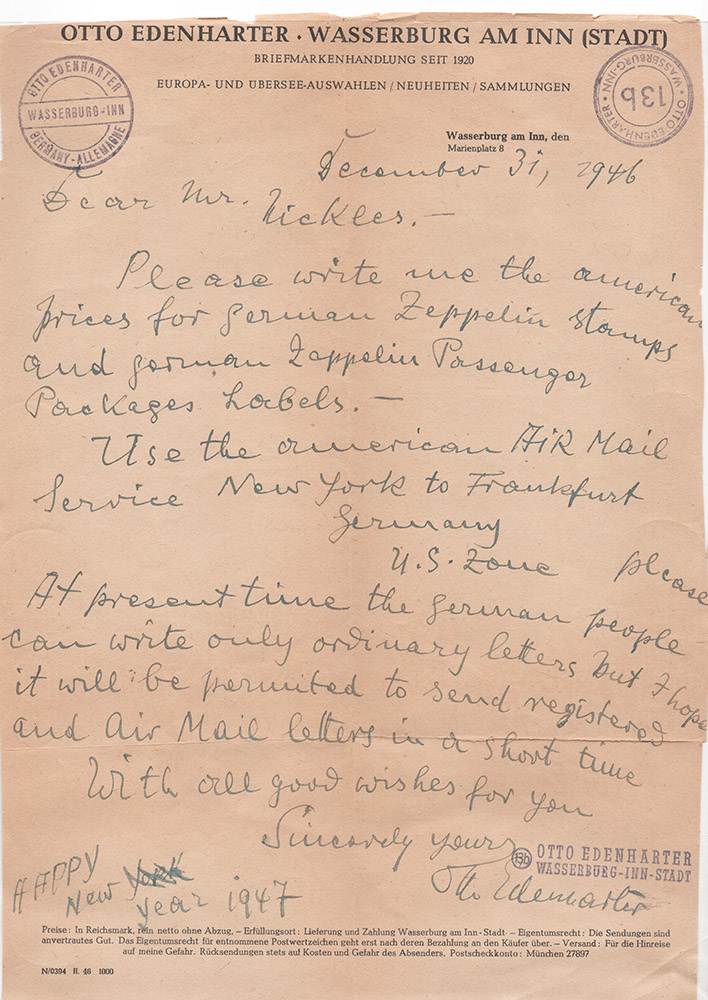 OTTO EDENHARTER · WASSERBURG AM INN (STADT)
BRIEFMARKENHANDLUNG SEIT 1920
EUROPA- UND ÜBERSEE-AUSWAHLEN / NEUHEITEN / SAMMLUNGEN
OTTO EDENHARTER
WASSERBURG-INN
GERMANY-ALLEMAGNE
OTTO EDENHARTER • WASSERBURG-INN •
13b
Wasserburg am Inn, den
Marienplatz 8
December 31, 1946
Dear Mr. Nickles.—
Please write me the american
prices for german Zeppelin stamps
and german Zeppelin Passenger
Packages Labels.—
Use the american AIR Mail
Service New York to Frankfurt
Germany
U.S. Zone please
At present time the german people
can write only ordinary letters but I hope
it will be permited to send registered
and Air Mail letters in a short time
With all good wishes for you
Sincerely yours
13b OTTO EDENHARTER
WASSERBURG-INN-STADT
Otto Edenharter
HAPPY
New York
Year 1947
Preise: In Reichsmark, rein netto ohne Abzug. – Erfüllungsort: Lieferung und Zahlung Wasserburg am Inn-Stadt. – Eigentumsrecht: Die Sendungen sind
anvertrautes Gut. Das Eigentumsrecht für entnommene Postwertzeichen geht erst nach deren Bezahlung an den Käufer über. – Versand: Für die Hinreise
auf meine Gefahr. Rücksendungen stets auf Kosten und Gefahr des Absenders. Postscheckkonto: München 27897
N/0394 II. 46 1000